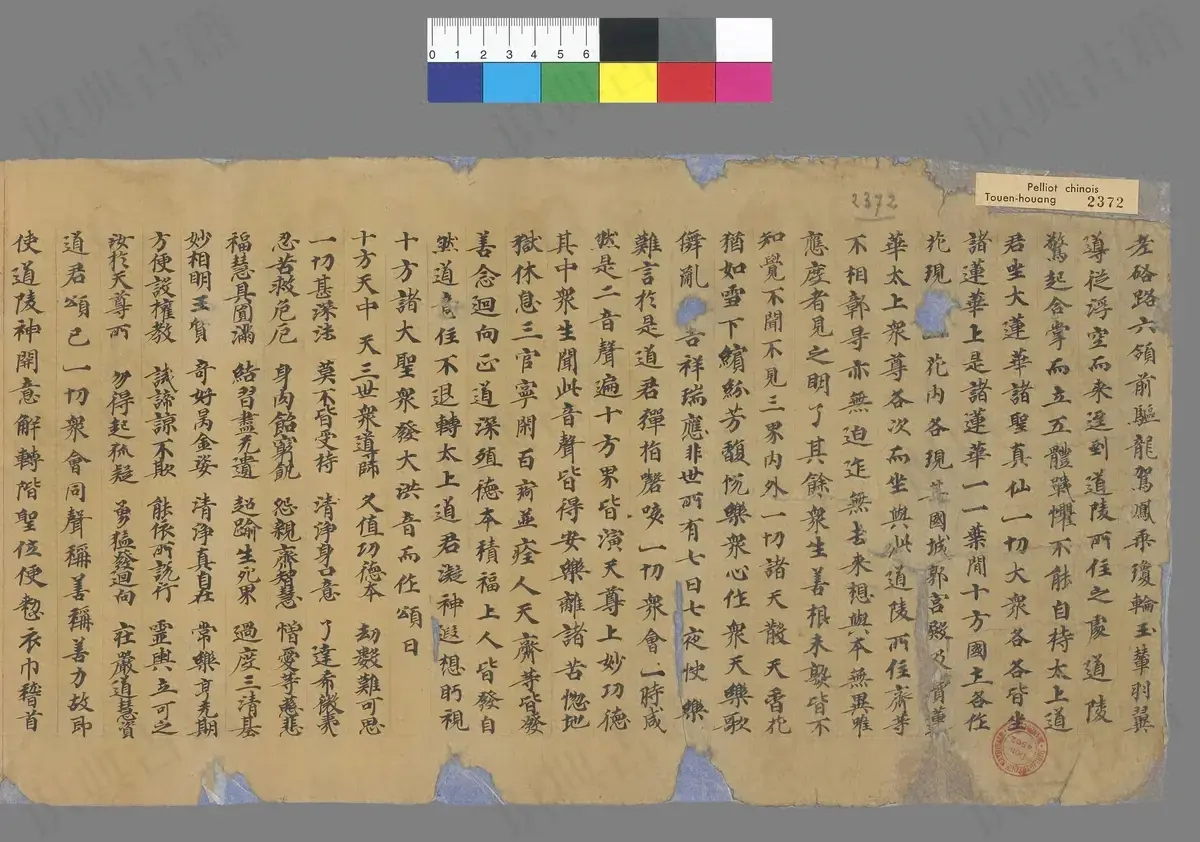 Pelliot chinois
Touen-houang 2372
2372
0 1 2 3 4 5 6
左硌路六領前驅龍駕鳳乘瓊輪玉輦羽翼
導從浮空而來逕到道陵所住之處道陵
驚起合掌而立五體戰懼不能自持太上道
君坐大蓮華諸聖真仙一切大衆各各皆坐
諸蓮華上是諸蓮華一一葉間十方國土各作
花現 花內各現其國城郭宮殿乃
華太上衆尊各次而坐與此道陵所住齊等
不相鄣导亦無迫迮無去來想與本無異唯
應度者見之明了其餘衆生善根未熟皆不
知覺不聞不見三界內外一切諸天散天香花
猶如雪下繽紛芳馥悅樂衆心作衆天樂歌
儛亂 吉祥瑞應非世所有七日七夜快樂
難言於是道君彈指謦咳一切衆會一時咸
然是二音聲遍十方界皆演天尊上妙功德
其中衆生聞此音聲皆得安樂離諸苦惱地
獄休息三官寧閑百痾並痊人天齊等皆發
善念迴向正道深殖德本積福上人皆發自
然道意住不退轉太上道君凝神遐想眄視
十方諸大聖衆發大洪音而作頌曰
十方天中天 三世衆導師 久值功德本 劫數難可思
一切甚深法 莫不皆受持 清淨身口意 了達希微義
忍苦救危厄 身肉飴窮飢 怨親齊智慧 憎愛等慈悲
福慧具圓滿 結習盡无遺 超踰生死果 過度三清基
妙相明玉質 奇好萬金姿 清淨真自在 常樂亨无期
方便設權教 誠諦諒不欺 能依所說行 靈輿立可之
汝於天尊所 勿得起狐疑 勇猛發迴向 莊嚴道慧資
道君頌已一切衆會同聲稱善稱善力故即
使道陵神開意解轉階聖位便整衣巾稽首